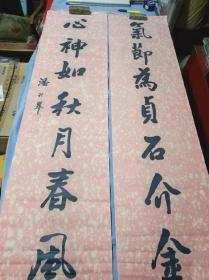 氣節為貞石介金
心神如秋月春風